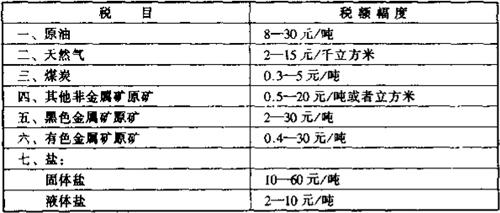 税 目 税额幅度
一、原油 8—30元/吨
二、天然气 2—15元/千立方米
三、煤炭 0.3—5元/吨
四、其他非金属矿原矿 0.5—20元/吨或者立方米
五、黑色金属矿原矿 2—30元/吨
六、有色金属矿原矿 0.4—30元/吨
七、盐:
固体盐 10—60元/吨
液体盐 2—10元/吨